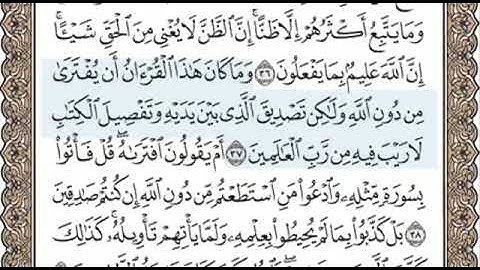 وَمَا يَتَّبِعُ أَكْثَرُهُمْ إِلَّا ظَنًّا ۚ إِنَّ ٱلظَّنَّ لَا يُغْنِى مِنَ ٱلْحَقِّ شَيْـًٔا ۚ
إِنَّ ٱللَّهَ عَلِيمٌۢ بِمَا يَفْعَلُونَ ٣٦ وَمَا كَانَ هَـٰذَا ٱلْقُرْءَانُ أَن يُفْتَرَىٰ
مِن دُونِ ٱللَّهِ وَلَـٰكِن تَصْدِيقَ ٱلَّذِى بَيْنَ يَدَيْهِ وَتَفْصِيلَ ٱلْكِتَـٰبِ
لَا رَيْبَ فِيهِ مِن رَّبِّ ٱلْعَـٰلَمِينَ ٣٧ أَمْ يَقُولُونَ ٱفْتَرَىٰهُ ۖ قُلْ فَأْتُوا۟
بِسُورَةٍ مِّثْلِهِۦ وَٱدْعُوا۟ مَنِ ٱسْتَطَعْتُم مِّن دُونِ ٱللَّهِ إِن كُنتُمْ صَـٰدِقِينَ
٣٨ بَلْ كَذَّبُوا۟ بِمَا لَمْ يُحِيطُوا۟ بِعِلْمِهِۦ وَلَمَّا يَأْتِهِمْ تَأْوِيلُهُۥ ۚ كَذَٰلِكَ